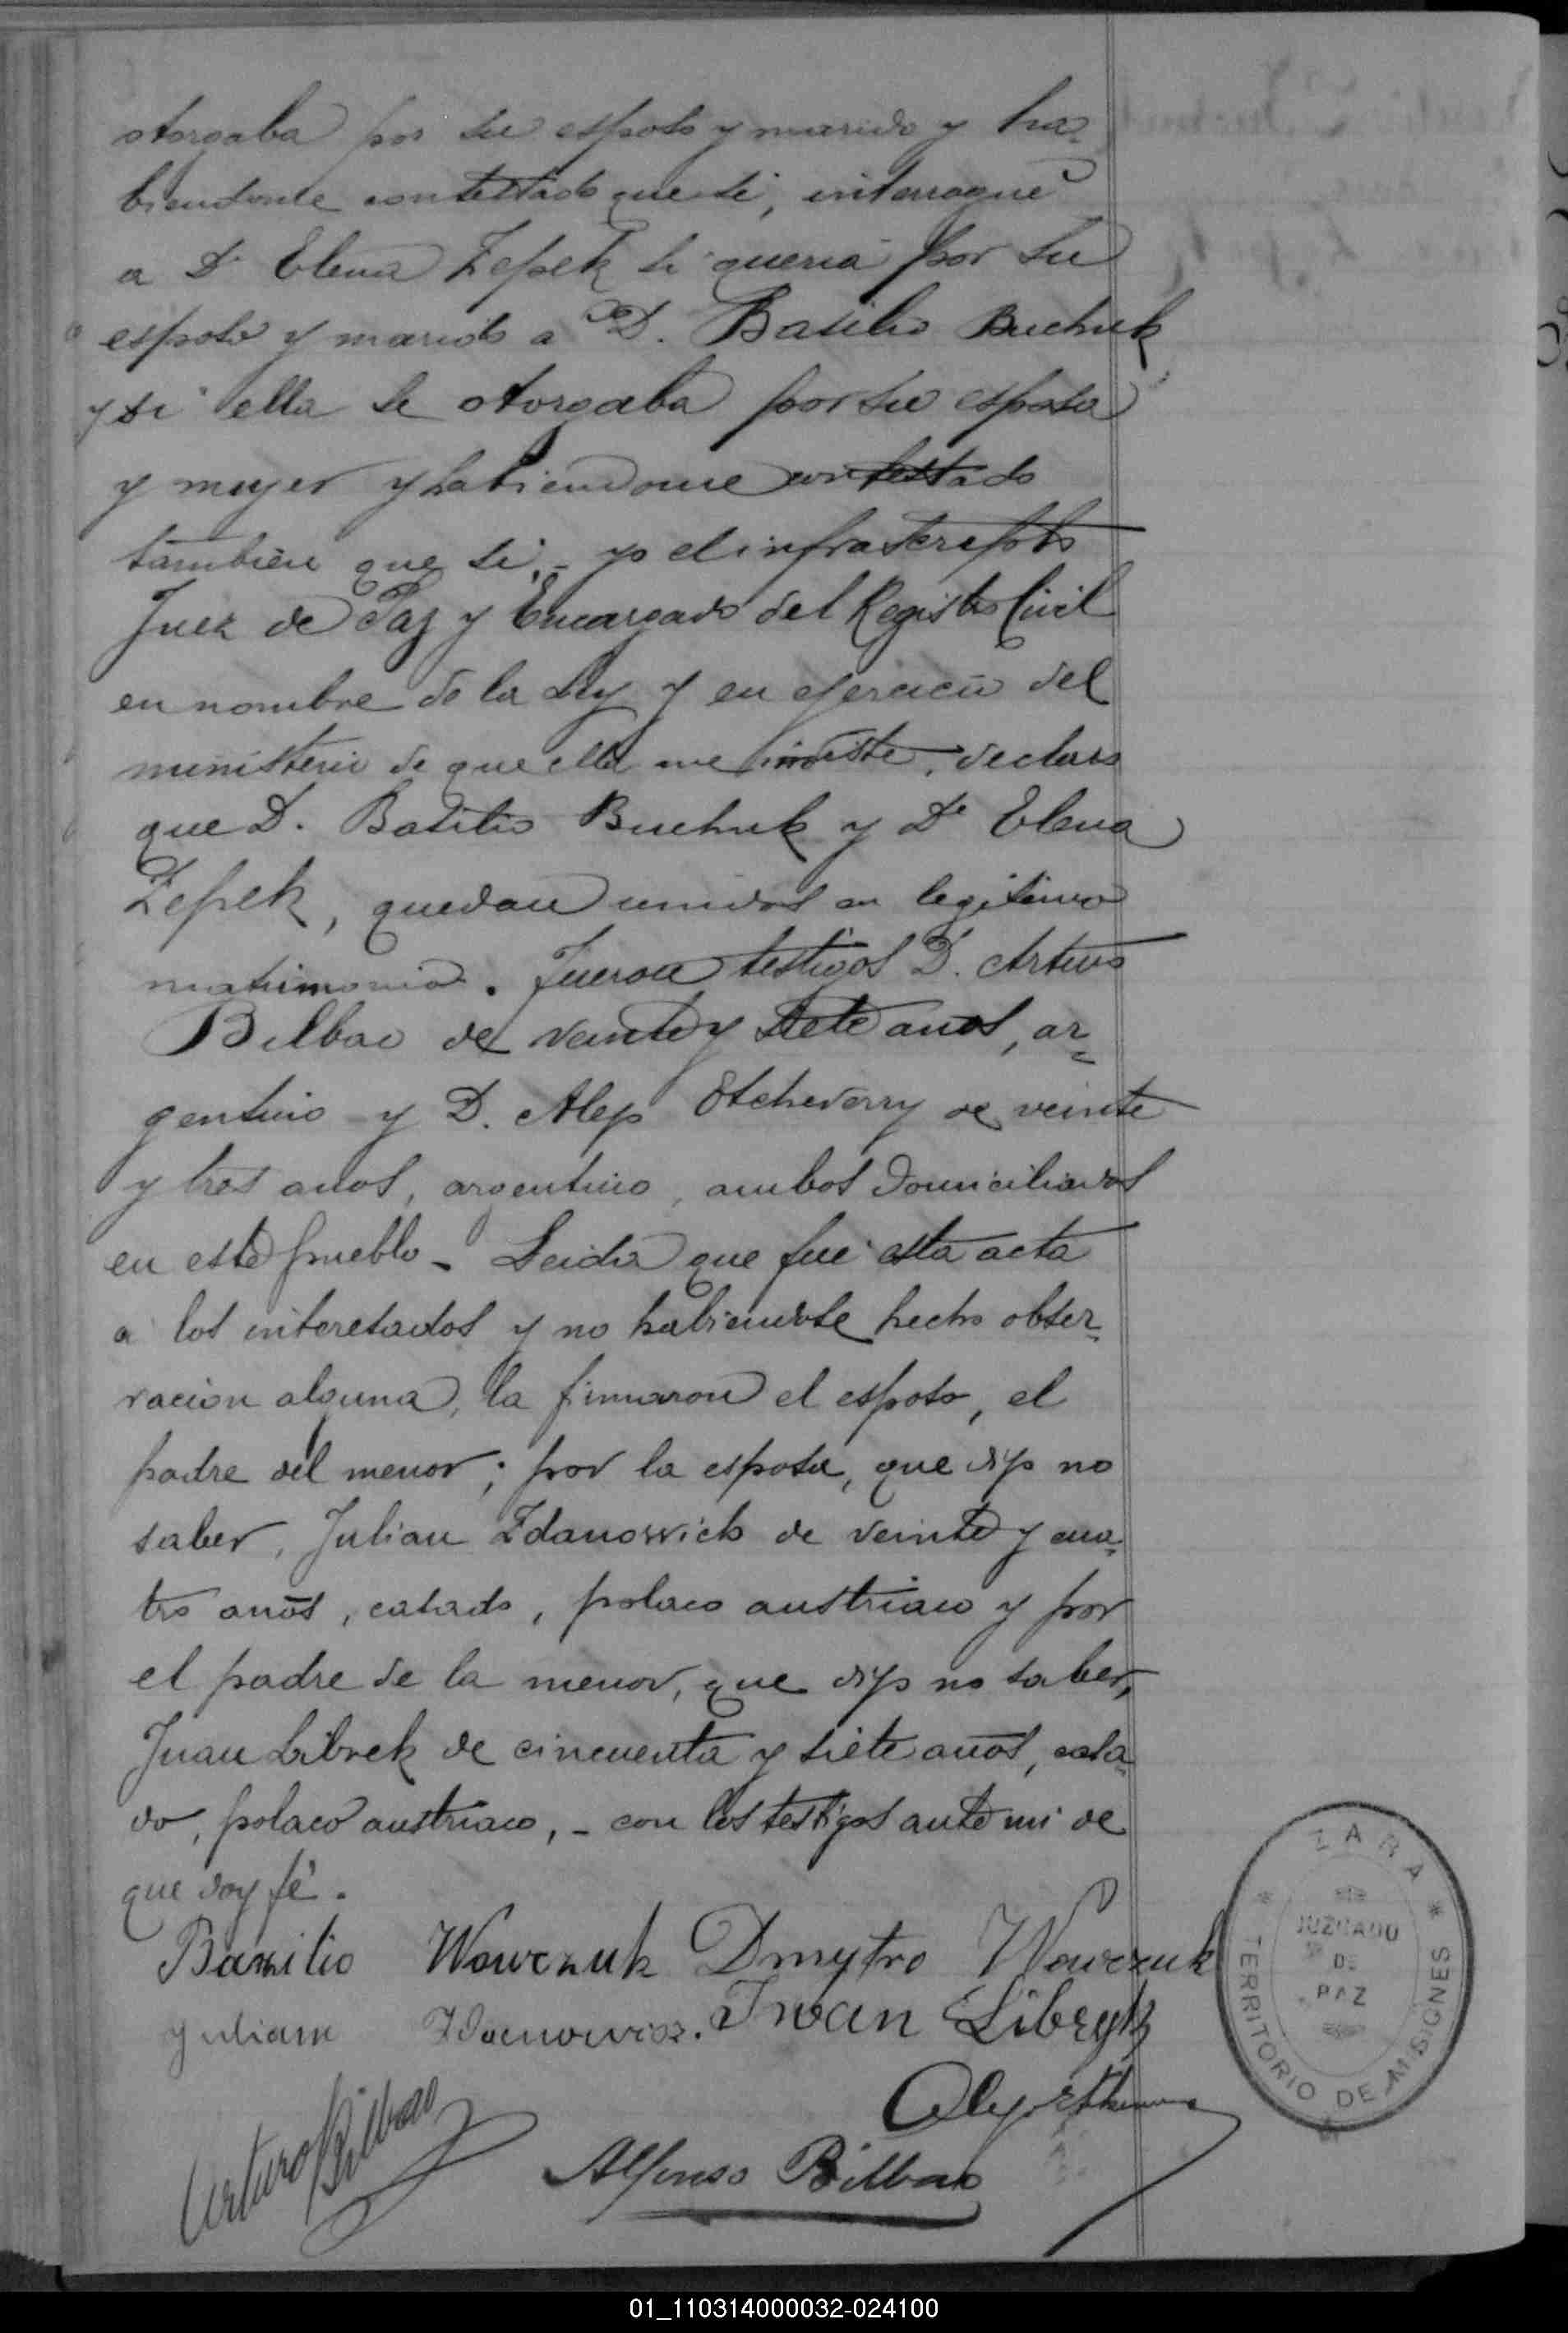 otorgaba por su esposo y marido y ha-
biendome contestado que si, interrogué
a Dª Elena Zepek si queria por su
esposo y marido a D. Basilio Buchuk
y si ella se otorgaba por su esposa
y mujer y habiendome contestado
tambien que si, - yo el infrascripto
Juez de Paz y Encargado del Registro Civil
en nombre de la Ley y en ejercicio del
ministerio de que ella me inviste, declaro
que D. Basilio Buchuk y Dª Elena
Zepek, quedan unidos en legitimo
matrimonio. Fueron testigos D. Arturo
Bilbao de veinte y siete anos, ar-
gentino y D. Alejo Etcheverry de veinte
y tres anos, argentino, ambos domiciliados
en este pueblo - Leida que fue esta acta
a los interesados y no habiendose hecho obser-
vacion alguna, la firmaron el esposo, el
padre del menor; por la esposa, que dijo no
saber, Julian Zdanowick de veinte y cua-
tro anos, casado, polaco austriaco y por
el padre de la menor, que dijo no saber,
Juan Librek de cincuenta y siete anos, casa-
do, polaco austriaco, - con los testigos ante mi de
que doy fé.
Bazilio Wowczuk Dmytro Wowczuk
Juliam Zdanowicz. Iwan Libryk
Arturo Bilbao
Alfonso Bilbao
ZARA
JUZGADO
DE
PAZ
TERRITORIO DE MISIONES
01_110314000032-024100